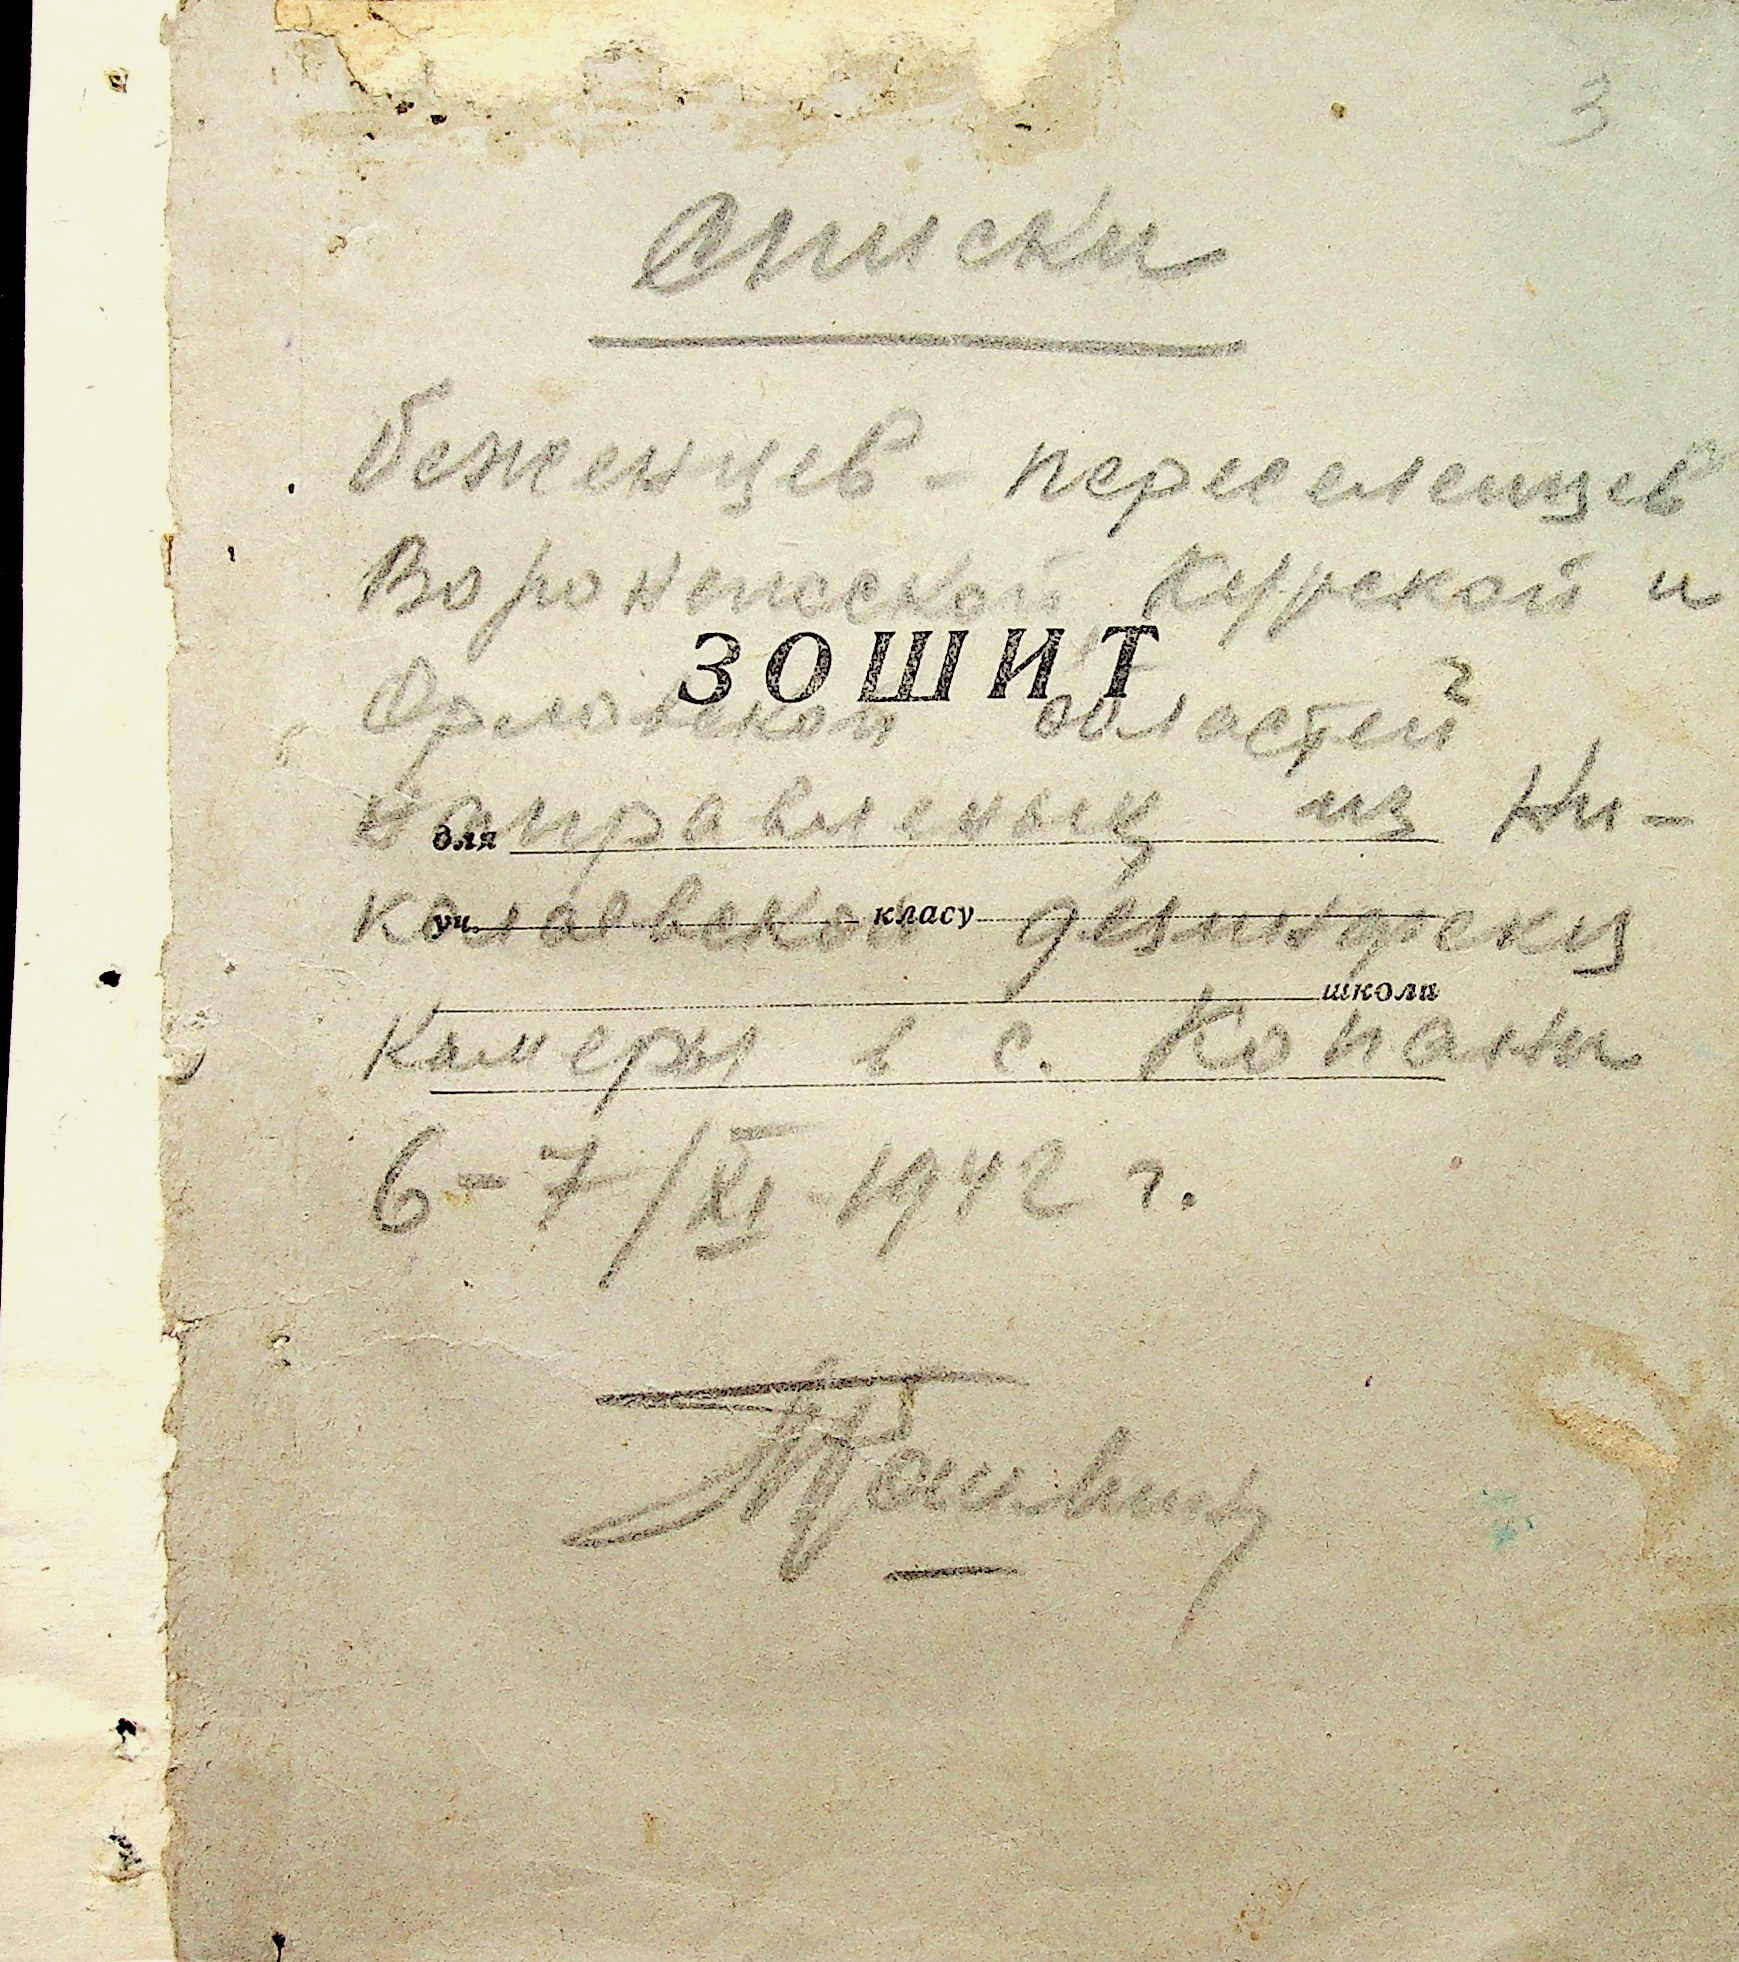 3
Списки
беженцев - переселенцев
Воронежской, Курской и
ЗОШИТ
Орловской областей
направленых из Ни-
для
колаевской дезинфекц
уч. класу
школи
камеры в с. Копани
6-7/XI-1942 г.